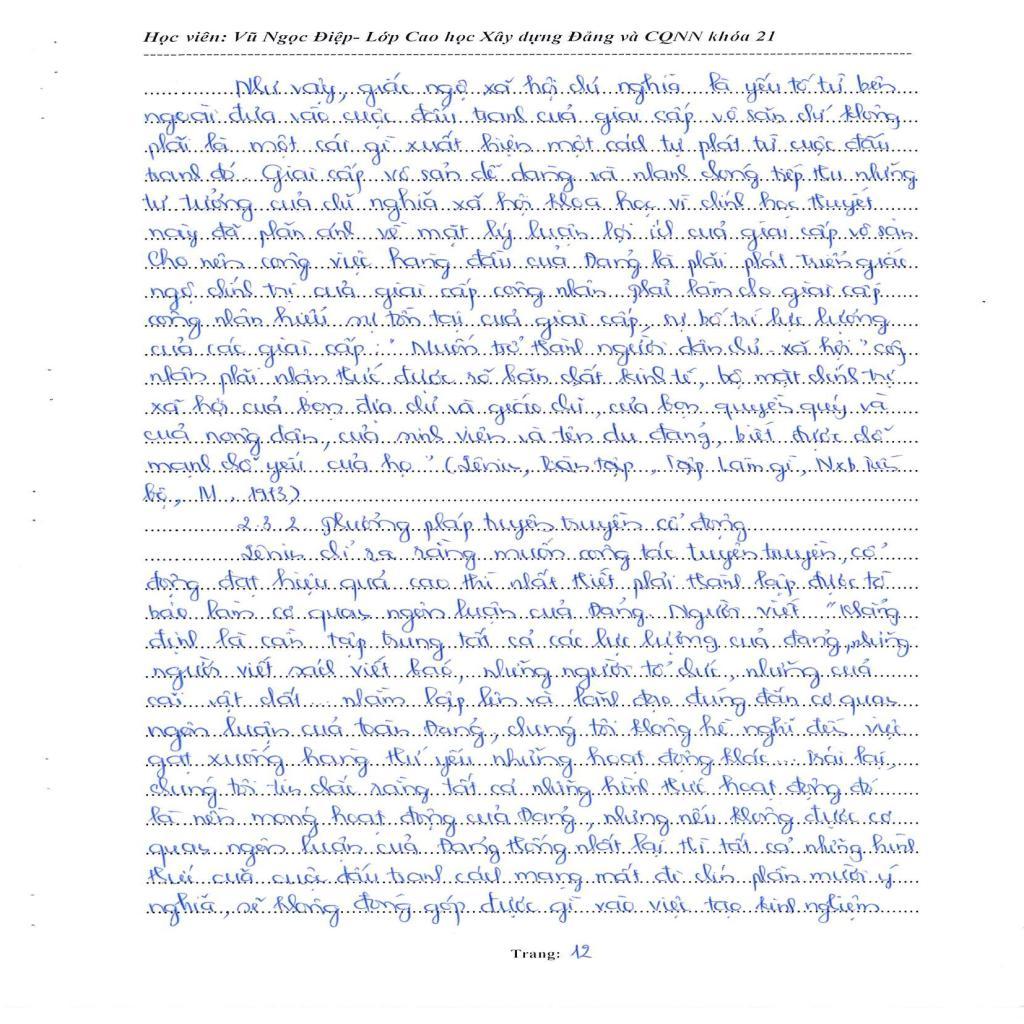 Học viên: Vũ Ngọc Điệp- Lớp Cao học Xây dựng Đảng và CQNN khóa 21
Như vậy, giác ngộ xã hội chủ nghĩa là yếu tố từ bên
ngoài đưa vào cuộc đấu tranh của giai cấp vô sản chứ không
phải là một cái gì xuất hiện một cách tự phát từ cuộc đấu
tranh đó. Giai cấp vô sản dễ dàng và nhanh chóng tiếp thu những
tư tưởng của chủ nghĩa xã hội khoa học vì chính học thuyết
này đã phản ánh về mặt lý luận lợi ích của giai cấp vô sản
Cho nên công việc hàng đầu của Đảng là phải phát triển giác
ngộ chính trị của giai cấp công nhân phải làm cho giai cấp
công nhân hiểu sự tồn tại của giai cấp, sự bố trí lực lượng
của các giai cấp: "Muốn trở thành người dân chủ xã hội" công
nhân phải nhận thức được rõ bản chất kinh tế, bộ mặt chính trị
xã hội của bọn địa chủ và giáo chủ, của bọn quyền quý và
của nông dân, của sinh viên và tên du đãng, biết được chỗ
mạnh chỗ yếu của họ" (Lênin, Toàn tập, Tập Làm gì, Nxb Tiến
bộ, M, 1973)
2.3.2 Phương pháp tuyên truyền cổ động
Lênin chỉ ra rằng muốn công tác tuyên truyền, cổ
động đạt hiệu quả cao thì nhất thiết phải thành lập được tờ
báo làm cơ quan ngôn luận của Đảng. Người viết "Khẳng
định là cần tập trung tất cả các lực lượng của đảng, những
người viết sách viết báo, những người tổ chức, những của
cải vật chất... nhằm lập lên và lãnh đạo đúng đắn cơ quan
ngôn luận của toàn Đảng, chúng tôi không hề nghĩ đến việc
gạt xuống hàng thứ yếu những hoạt động khác... trái lại,
chúng tôi tin chắc rằng tất cả những hình thức hoạt động đó
là nền móng hoạt động của Đảng, nhưng nếu không được cơ
quan ngôn luận của Đảng thống nhất lại thì tất cả những hình
thức của cuộc đấu tranh cách mạng mất đi chín phần mười ý
nghĩa, sẽ không đóng góp được gì vào việc tạo kinh nghiệm
Trang: 12